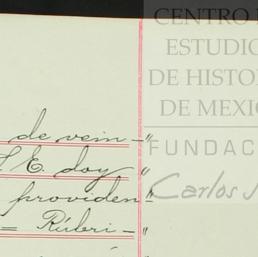 CENTRO
ESTUDIO
DE HISTO
DE MEXIC
FUNDAC
Carlos
de vein-"
E. doy "
providen"
= Rúbri-"